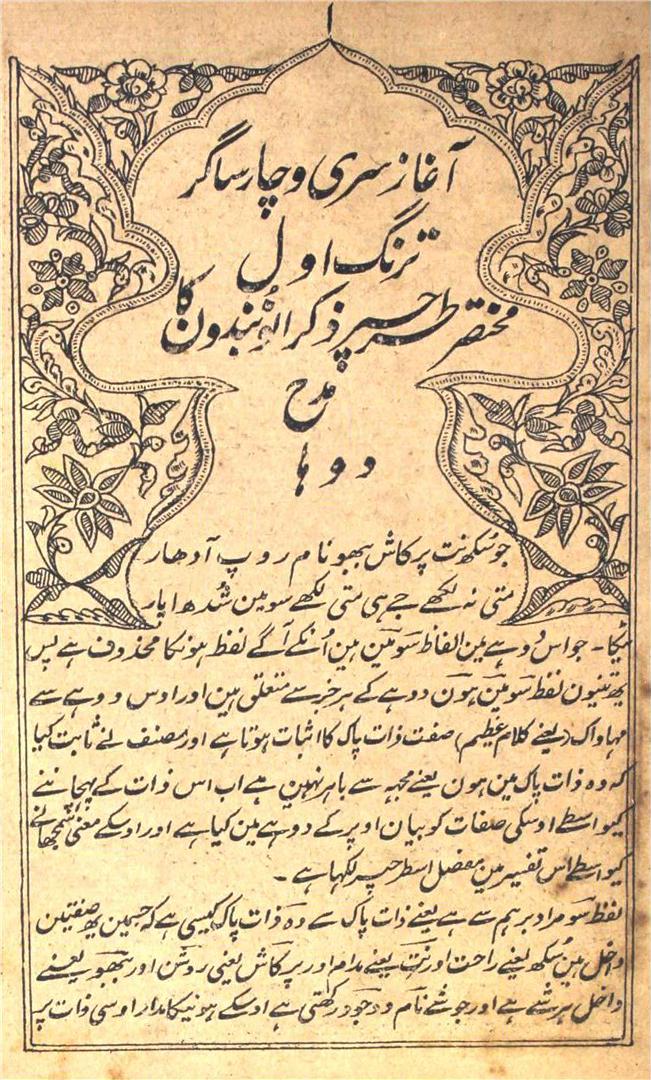 ا
آغاز سری وچار ساگر
ترنگ اول
مختصر طرحپر ذکر انُوبندون کا
مدح
دوہا
جو سُکھ نت پرکاش ببھو نام روپ آدھار
متی نہ لکھے جے ہی متی لکھے سو مین شُدھ اپار
ٹیکا - جو اس دوہے مین الفاظ سو مَین ہین اُنکے آگے لفظ ہونکا محذوف ہے پس
یہ تینون لفظ سو مَین ہون دوہے کے ہر جز سے متعلق ہین اور اوس دوہے سے
مہاواک (یعنے کلام عظیم) صفت ذات پاک کا اثبات ہوتا ہے اور مصنف نے ثابت کیا
کہ وہ ذات پاک مین ہون یعنے مجہہ سے باہر نہین ہے اب اس ذات کے پہچاننے
کیواسطے اوسکی صفات کو بیان اوپر کے دوہے مین کیا ہے اور اوسکے معنی سمجھانے
کیواسطے اس تفسیر مین مفصل اسطرحپر لکہا ہے -
لفظ سو مراد برہم سے ہے یعنے ذات پاک سے وہ ذات پاک کیسی ہے کہ جسمین یہ صفتین
داخل ہین سُکھ یعنے راحت اور نت یعنے مدام اور پرکاش یعنی روشن اور ببھو یعنے
داخل ہر شے ہے اور جو شے نام و وجود رکھتی ہے اوسکے ہونیکا مدار اوسی ذات پر